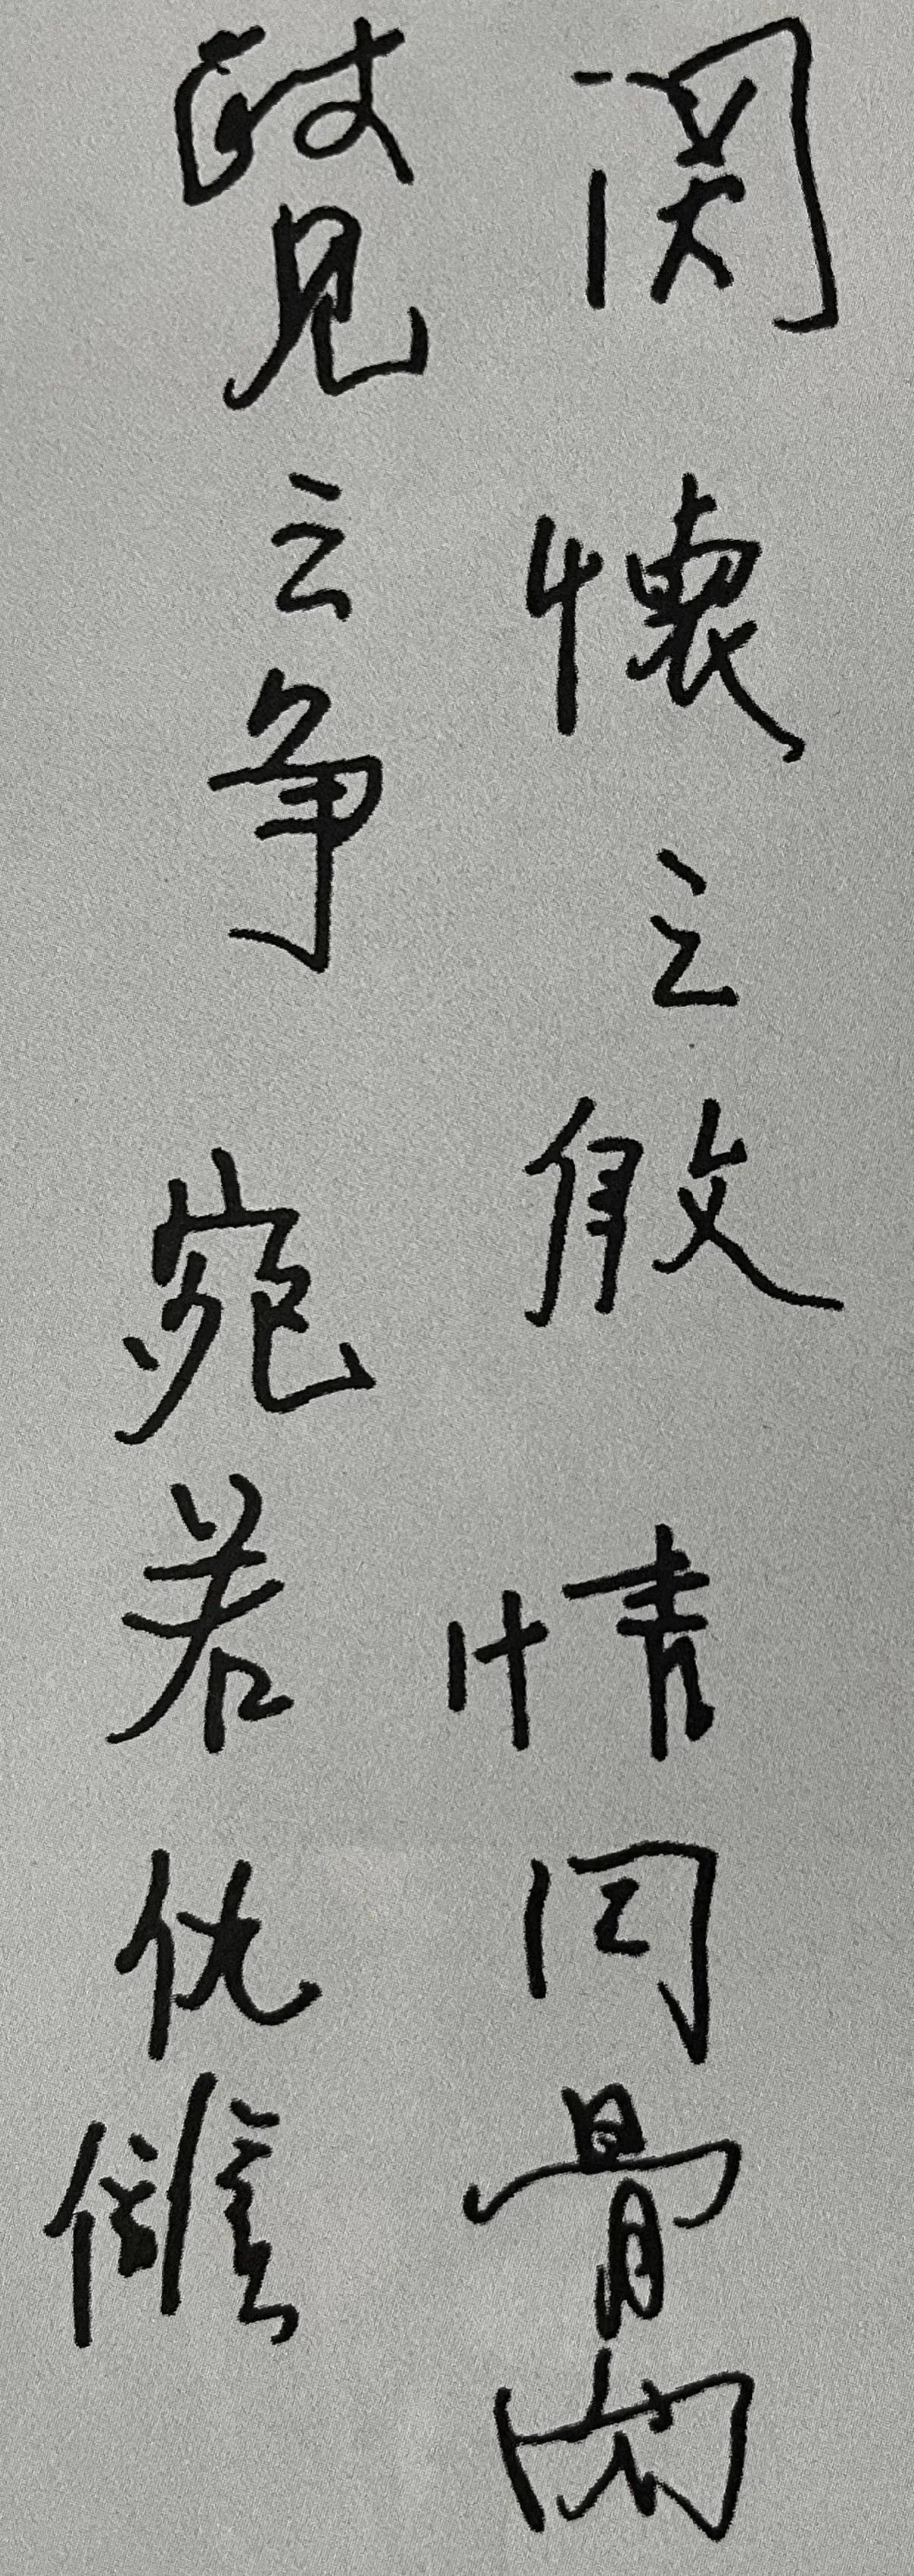 関懷之殷 情同骨肉
政見之争 宛若仇讎